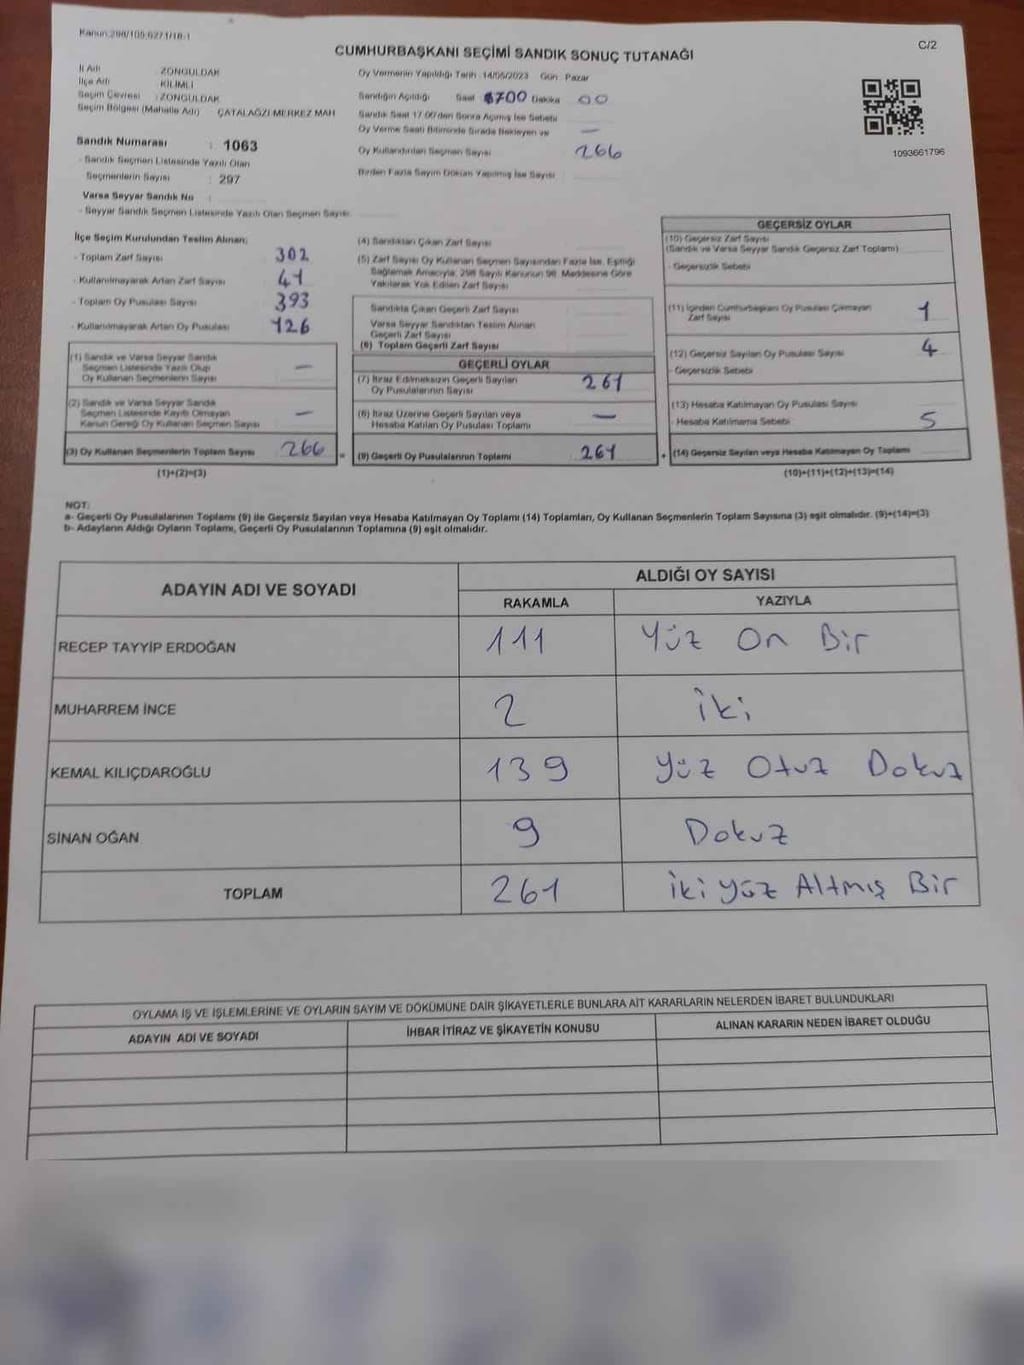 Kanun:298/105;6271/18-1
C/2
CUMHURBAŞKANI SEÇİMİ SANDIK SONUÇ TUTANAĞI
İl Adı : ZONGULDAK
İlçe Adı : KİLİMLİ
Seçim Çevresi : ZONGULDAK
Seçim Bölgesi (Mahalle Adı) : ÇATALAĞZI MERKEZ MAH
Sandık Numarası : 1063
- Sandık Seçmen Listesinde Yazılı Olan
Seçmenlerin Sayısı : 297
Varsa Seyyar Sandık No :
- Seyyar Sandık Seçmen Listesinde Yazılı Olan Seçmen Sayısı
Oy Vermenin Yapıldığı Tarih : 14/05/2023 Gün : Pazar
Sandığın Açıldığı Saat 1700 Dakika 00
Sandık Saat 17.00'den Sonra Açılmış İse Sebebi
Oy Verme Saati Bitiminde Sırada Bekleyen ve —
Oy Kullandırılan Seçmen Sayısı 266
Birden Fazla Sayım Döküm Yapılmış İse Sayısı
1093661796
İlçe Seçim Kurulundan Teslim Alınan;
- Toplam Zarf Sayısı 302
- Kullanılmayarak Artan Zarf Sayısı 41
- Toplam Oy Pusulası Sayısı 393
- Kullanılmayarak Artan Oy Pusulası 126
(1) Sandık ve Varsa Seyyar Sandık
Seçmen Listesinde Yazılı Olup
Oy Kullanan Seçmenlerin Sayısı —
(2) Sandık ve Varsa Seyyar Sandık
Seçmen Listesinde Kayıtlı Olmayan
Kanun Gereği Oy Kullanan Seçmen Sayısı —
(3) Oy Kullanan Seçmenlerin Toplam Sayısı 266 =
(1)+(2)=(3)
(4) Sandıktan Çıkan Zarf Sayısı
(5) Zarf Sayısı Oy Kullanan Seçmen Sayısından Fazla İse, Eşitliği
Sağlamak Amacıyla, 298 Sayılı Kanunun 98. Maddesine Göre
Yakılarak Yok Edilen Zarf Sayısı
Sandıkta Çıkan Geçerli Zarf Sayısı
Varsa Seyyar Sandıktan Teslim Alınan
Geçerli Zarf Sayısı
(6) Toplam Geçerli Zarf Sayısı
GEÇERLİ OYLAR
(7) İtiraz Edilmeksizin Geçerli Sayılan
Oy Pusulalarının Sayısı 261
(8) İtiraz Üzerine Geçerli Sayılan veya
Hesaba Katılan Oy Pusulası Toplamı —
(9) Geçerli Oy Pusulalarının Toplamı 261 +
GEÇERSİZ OYLAR
(10) Geçersiz Zarf Sayısı
(Sandık ve Varsa Seyyar Sandık Geçersiz Zarf Toplamı)
- Geçersizlik Sebebi
(11) İçinden Cumhurbaşkanı Oy Pusulası Çıkmayan
Zarf Sayısı 1
(12) Geçersiz Sayılan Oy Pusulası Sayısı 4
- Geçersizlik Sebebi
(13) Hesaba Katılmayan Oy Pusulası Sayısı
- Hesaba Katılmama Sebebi 5
(14) Geçersiz Sayılan veya Hesaba Katılmayan Oy Toplamı
(10)+(11)+(12)+(13)=(14)
NOT:
a- Geçerli Oy Pusulalarının Toplamı (9) ile Geçersiz Sayılan veya Hesaba Katılmayan Oy Toplamı (14) Toplamları, Oy Kullanan Seçmenlerin Toplam Sayısına (3) eşit olmalıdır. (9)+(14)=(3)
b- Adayların Aldığı Oyların Toplamı, Geçerli Oy Pusulalarının Toplamına (9) eşit olmalıdır.
ADAYIN ADI VE SOYADI
ALDIĞI OY SAYISI
RAKAMLA YAZIYLA
RECEP TAYYİP ERDOĞAN 111 Yüz On Bir
MUHARREM İNCE 2 İki
KEMAL KILIÇDAROĞLU 139 Yüz Otuz Dokuz
SİNAN OĞAN 9 Dokuz
TOPLAM 261 İki Yüz Altmış Bir
OYLAMA İŞ VE İŞLEMLERİNE VE OYLARIN SAYIM VE DÖKÜMÜNE DAİR ŞİKAYETLERLE BUNLARA AİT KARARLARIN NELERDEN İBARET BULUNDUKLARI
ADAYIN ADI VE SOYADI İHBAR İTİRAZ VE ŞİKAYETİN KONUSU ALINAN KARARIN NEDEN İBARET OLDUĞU